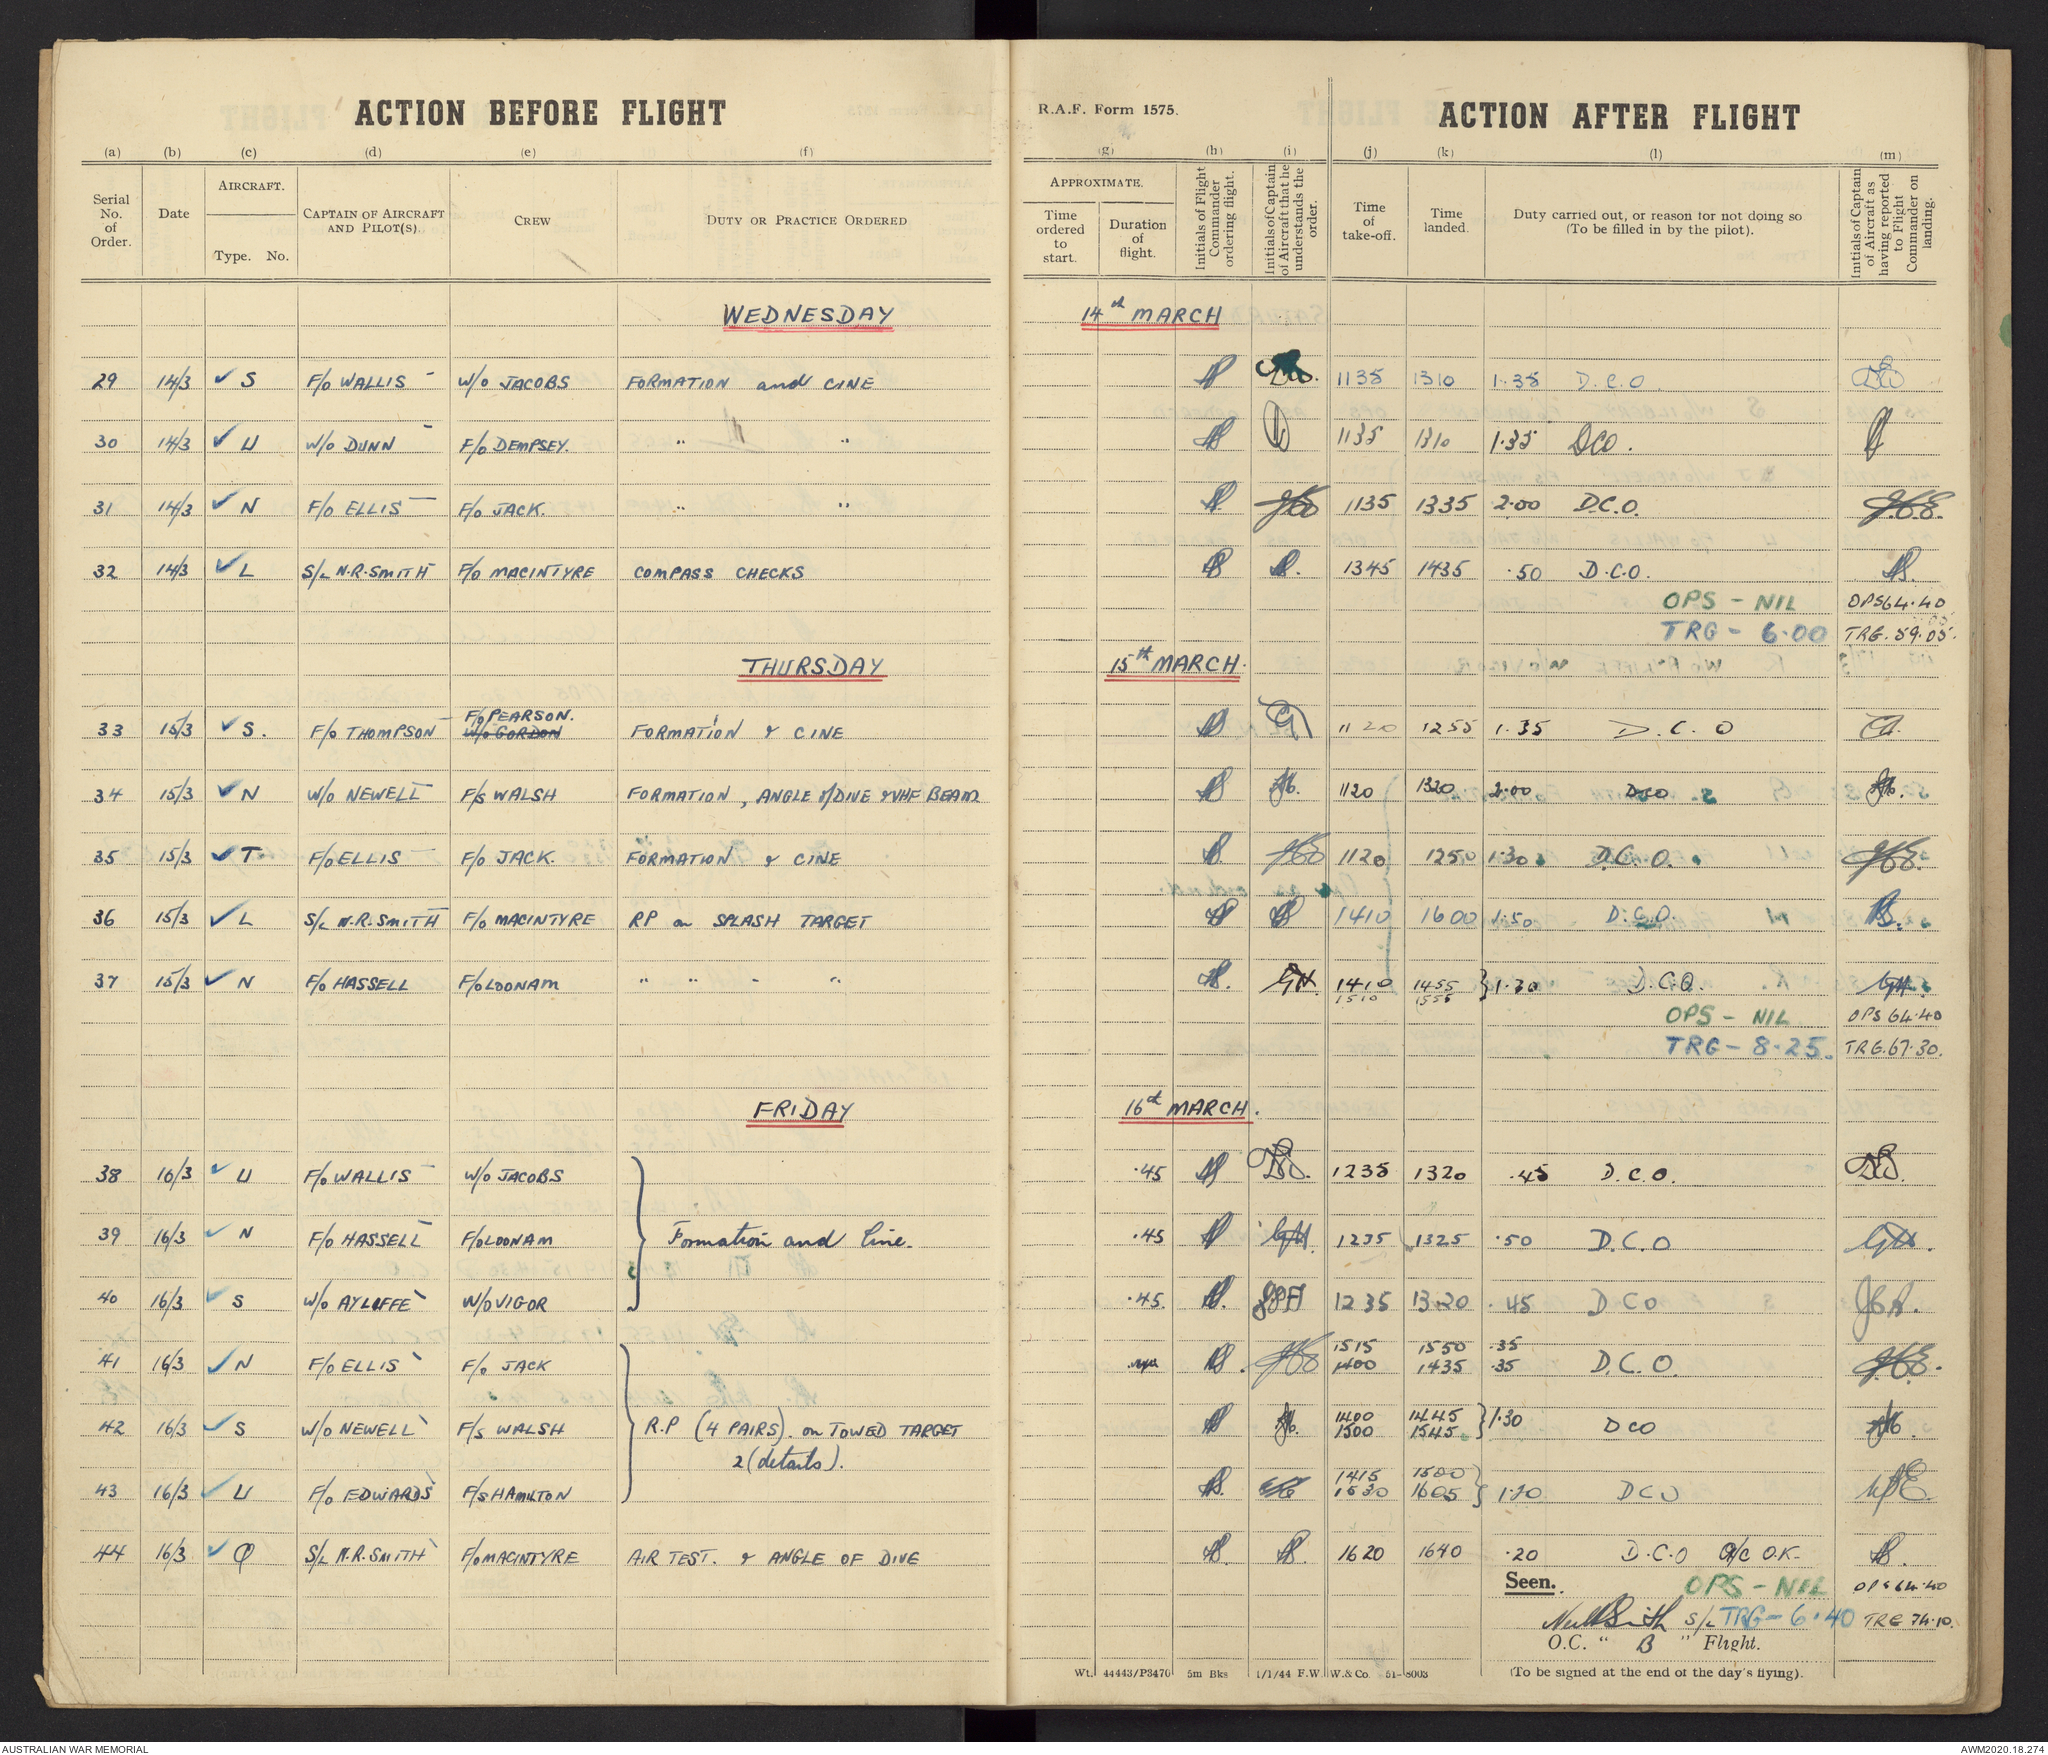 ACTION BEFORE FLIGHT
R.A.F. Form 1575.
ACTION AFTER FLIGHT
(a) (b) (c) (d) (e) (f) (g) (h) (i) (j) (k) (l) (m)
Serial No. of Order.
Date
AIRCRAFT.
Type. No.
CAPTAIN OF AIRCRAFT AND PILOT(S)
CREW
DUTY OR PRACTICE ORDERED
APPROXIMATE.
Time ordered to start.
Duration of flight.
Initials of Flight Commander ordering flight.
Initials of Captain of Aircraft that he understands the order.
Time of take-off.
Time landed.
Duty carried out, or reason for not doing so (To be filled in by the pilot).
Initials of Captain of Aircraft as having reported to Flight Commander on landing.
WEDNESDAY 14th MARCH
29 14/3 ✓ S F/O WALLIS W/O JACOBS FORMATION and CINE 1135 1310 1.35 D.C.O.
30 14/3 ✓ U W/O DUNN F/O DEMPSEY. " " 1135 1310 1.35 DCO.
31 14/3 ✓ N F/O ELLIS F/O JACK. " " 1135 1335 2.00 D.C.O.
32 14/3 ✓ L S/L N.R.SMITH F/O MACINTYRE COMPASS CHECKS 1345 1435 .50 D.C.O.
OPS - NIL OPS 64.40
TRG - 6.00 TRG. 59.05.
THURSDAY 15th MARCH.
F/O PEARSON.
33 15/3 ✓ S. F/O THOMPSON W/O GORDON FORMATION & CINE 1120 1255 1.35 D.C.O
34 15/3 ✓ N W/O NEWELL F/S WALSH FORMATION, ANGLE of DIVE & VHF BEAM 1120 1320 2.00 DCO
35 15/3 ✓ T F/O ELLIS F/O JACK. FORMATION & CINE 1120 1250 1.30 D.C.O.
36 15/3 ✓ L S/L N.R.SMITH F/O MACINTYRE RP on SPLASH TARGET 1410 1600 1.50 D.C.O.
37 15/3 ✓ N F/O HASSELL F/O LOONAM " " " " 1410 1455 } 1.30 D.C.O.
1510 1555
OPS - NIL OPS 64.40
TRG - 8.25. TRG. 67.30.
FRIDAY 16th MARCH.
38 16/3 ✓ U F/O WALLIS W/O JACOBS .45 1235 1320 .45 D.C.O.
39 16/3 ✓ N F/O HASSELL F/O LOONAM Formation and Cine. .45 1235 1325 .50 D.C.O
40 16/3 ✓ S W/O AYLIFFE W/O VIGOR .45. 1235 1320 .45 DCO
1515 1550 .35
41 16/3 ✓ N F/O ELLIS F/O JACK 1400 1435 .35 D.C.O.
42 16/3 ✓ S W/O NEWELL F/S WALSH R.P (4 PAIRS). on TOWED TARGET 1400 1445 } 1.30 DCO
1500 1545
2 (details).
1415 1500
43 16/3 ✓ U F/O EDWARDS F/S HAMILTON 1530 1605 } 1.20 DCO
44 16/3 ✓ Q S/L N.R.SMITH F/O MACINTYRE AIR TEST. & ANGLE OF DIVE 1620 1640 .20 D.C.O A/C O.K.
Seen. OPS - NIL OPS 64.40
S/L TRG - 6.40 TRG 74.10.
O.C. " B " Flight.
Wt. 44443/P3470 5m Bks 1/1/44 F.W. W. & Co. 51-8003 (To be signed at the end of the day's flying).
AUSTRALIAN WAR MEMORIAL
AWM2020.18.274